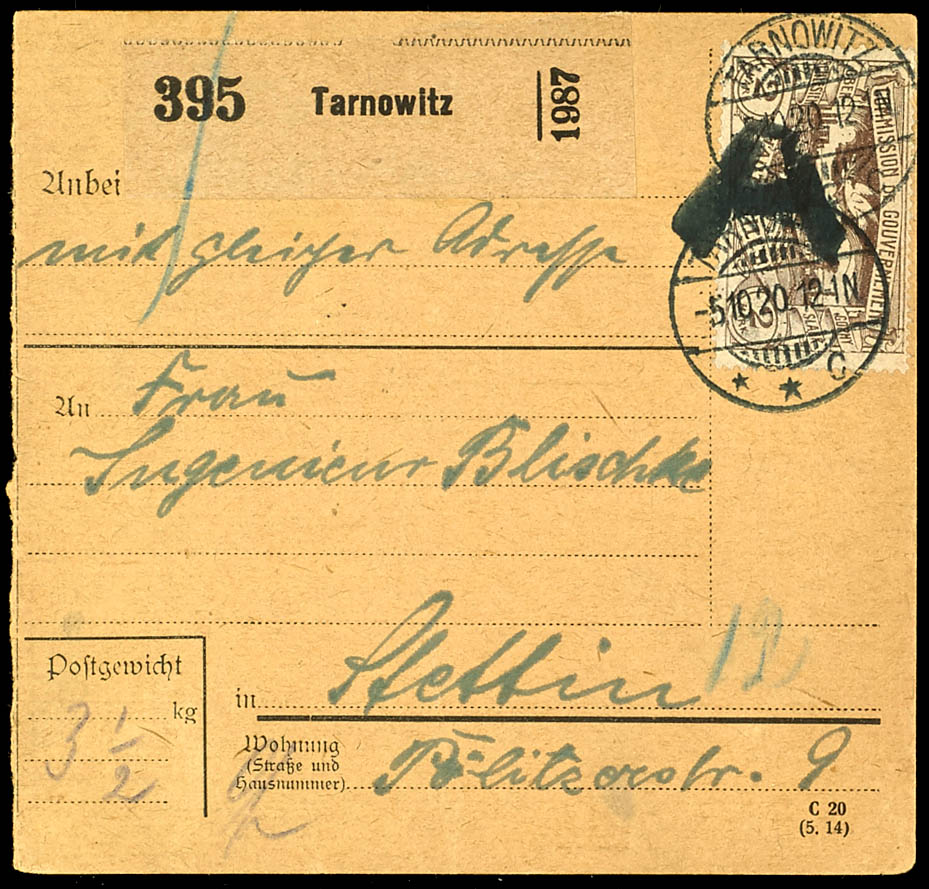 395 Tarnowitz 1987
TARNOWITZ
Anbei
mit gleicher Adresse
COMMISSION DE GOUVERNEMENT
-5.10.20. 12-1N
C
An Frau
Ingenieur Blischke
12
in Stettin
Postgewicht
3 1/2 kg
Wohnung
(Straße und
Hausnummer)
Pölitzerstr. 9
C 20
(5. 14)